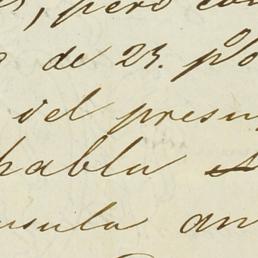 , pero con
de 23. po
del presu
habla
usula an